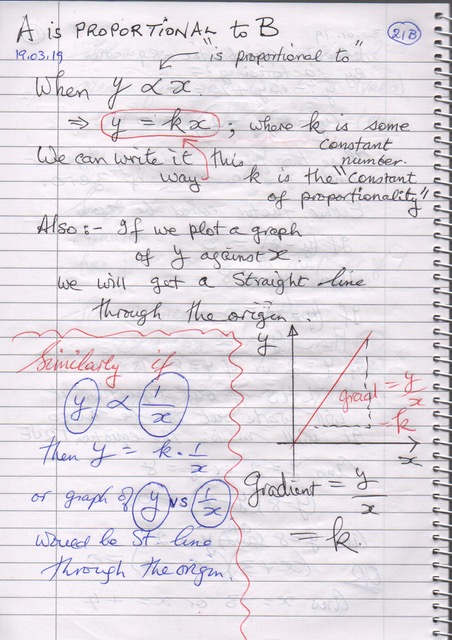 A is PROPORTIONAL to B
21B
19.03.19
"is proportional to"
When y ∝ x.
⇒ y = kx ; where k is some
constant
number.
We can write it this
way
k is the "constant
of proportionality"
Also :- If we plot a graph
of y against x.
we will get a straight line
through the origin.
Similarly if
y ∝ 1/x
then y = k · 1/x
or graph of y vs 1/x
would be st. line
through the origin.
y
grad = y/x
= k
x
Gradient = y/x
= k.